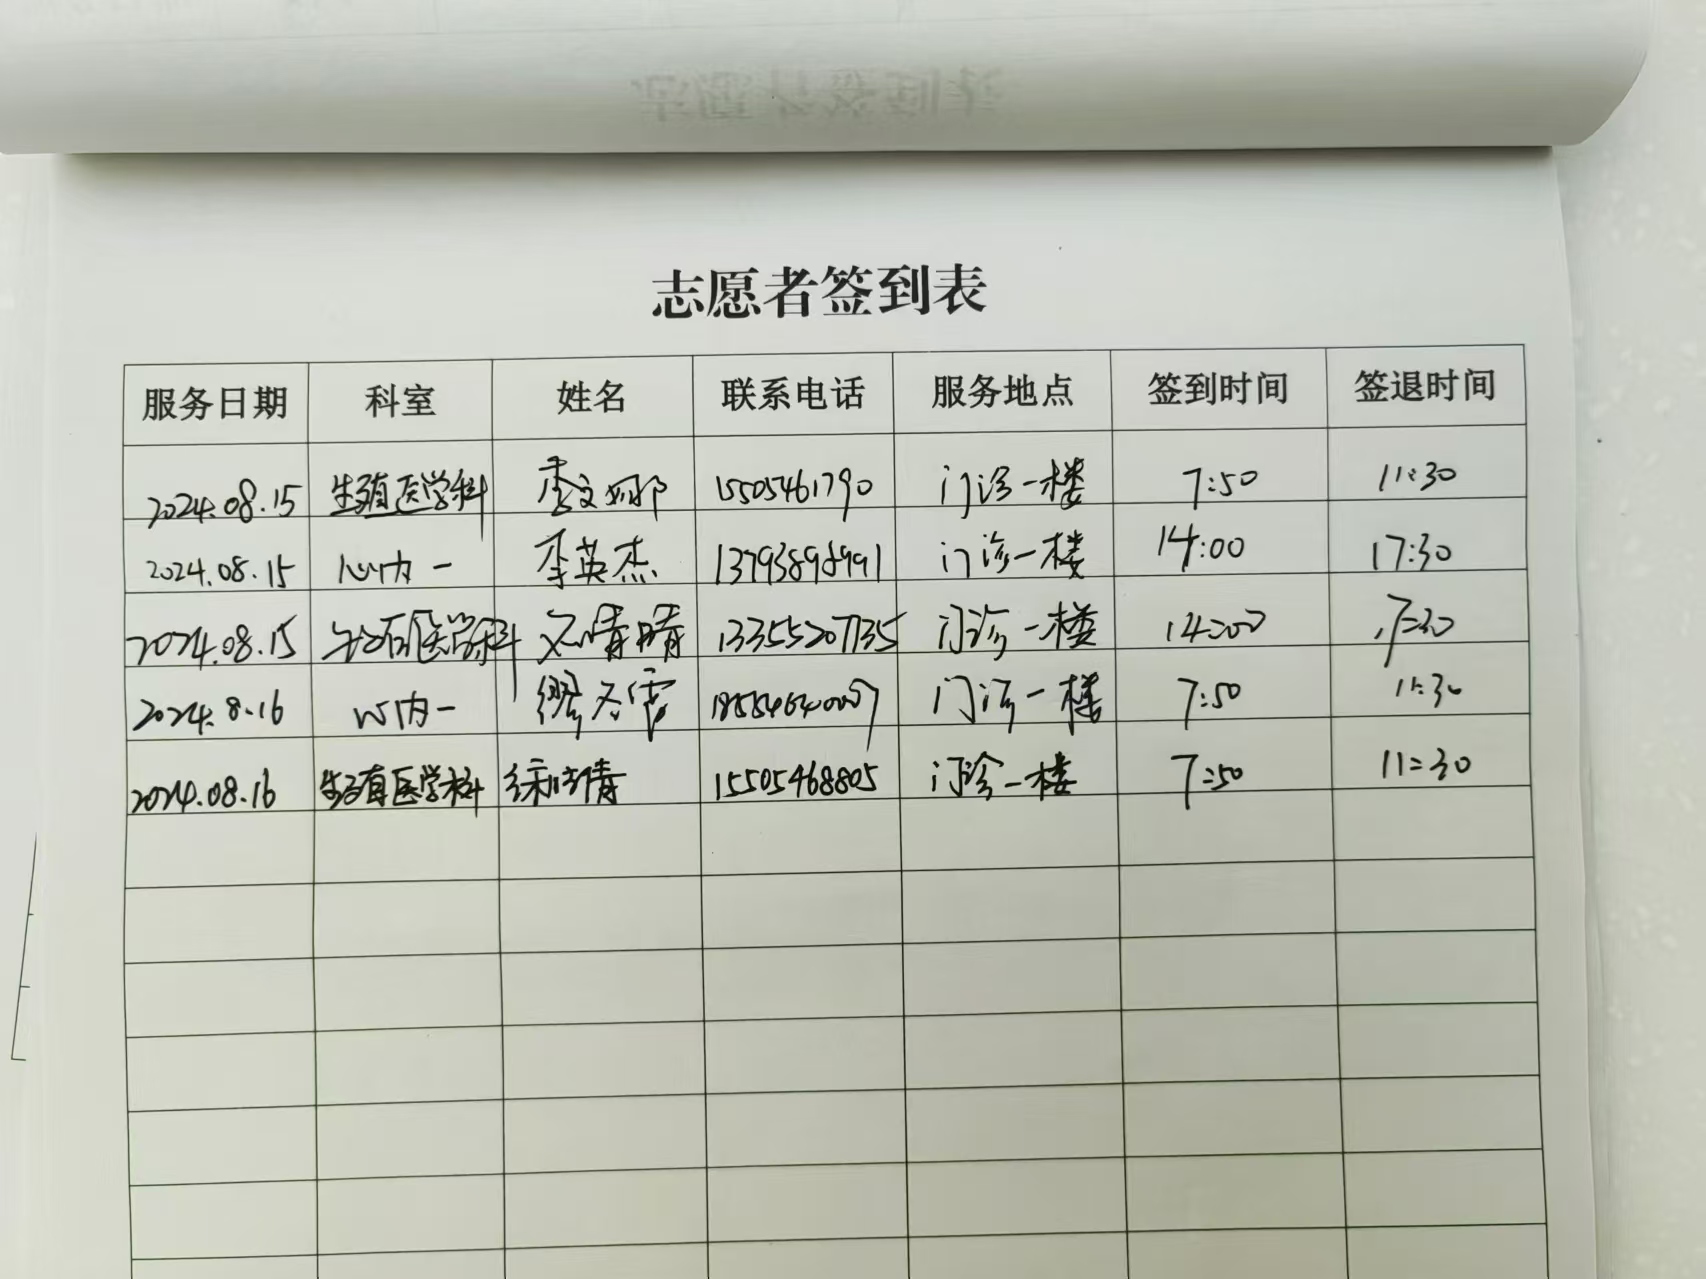 志愿者签到表
服务日期 科室 姓名 联系电话 服务地点 签到时间 签退时间
2024.08.15 生殖医学科 李文娜 15505461790 门诊一楼 7:50 11:30
2024.08.15 心内一 李英杰 13793898991 门诊一楼 14:00 17:30
2024.08.15 生殖医学科 晴晴 13355207135 门诊一楼 14:00 17:30
2024.8.16 心内一 门诊一楼 7:50 11:30
2024.08.16 生殖医学科 15505468805 门诊一楼 7:50 11:30